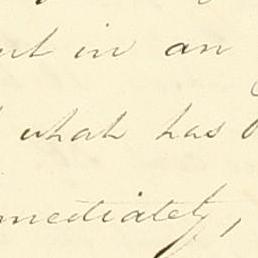 in an
what has
mmediately,